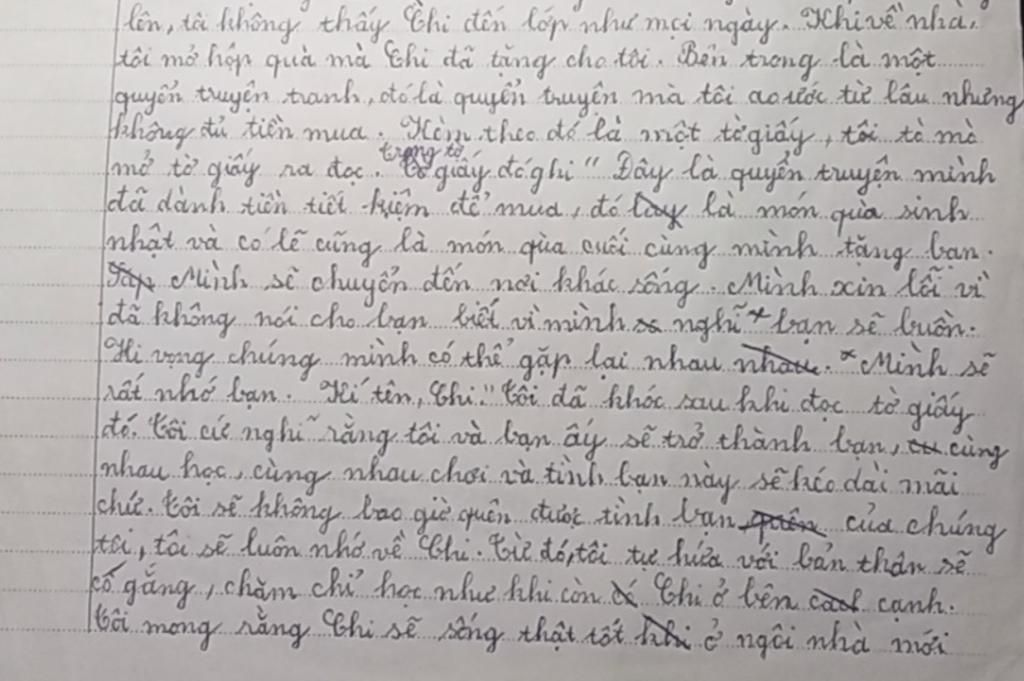 lên, tôi không thấy Chi đến lớp như mọi ngày. Khi về nhà,
tôi mở hộp quà mà Chi đã tặng cho tôi. Bên trong là một
quyển truyện tranh, đó là quyển truyện mà tôi ao ước từ lâu nhưng
không đủ tiền mua. Kèm theo đó là một tờ giấy, tôi tò mò
trong tờ
mở tờ giấy ra đọc. tờ giấy đó ghi "Đây là quyển truyện mình
đã dành tiền tiết kiệm để mua, đó là món quà sinh
nhật và có lẽ cũng là món qùa cuối cùng mình tặng bạn.
Mình sẽ chuyển đến nơi khác sống. Mình xin lỗi vì
đã không nói cho bạn biết vì mình nghĩ bạn sẽ buồn.
Hi vọng chúng mình có thể gặp lại nhau. Mình sẽ
rất nhớ bạn. Kí tên, Chi." Tôi đã khóc sau khi đọc tờ giấy
đó. Tôi cứ nghĩ rằng tôi và bạn ấy sẽ trở thành bạn, cùng
nhau học, cùng nhau chơi và tình bạn này sẽ kéo dài mãi
chứ. Tôi sẽ không bao giờ quên được tình bạn của chúng
tôi, tôi sẽ luôn nhớ về Chi. Từ đó, tôi tự hứa với bản thân sẽ
cố gắng, chăm chỉ học như khi còn Chi ở bên cạnh.
Tôi mong rằng Chi sẽ sống thật tốt ở ngôi nhà mới